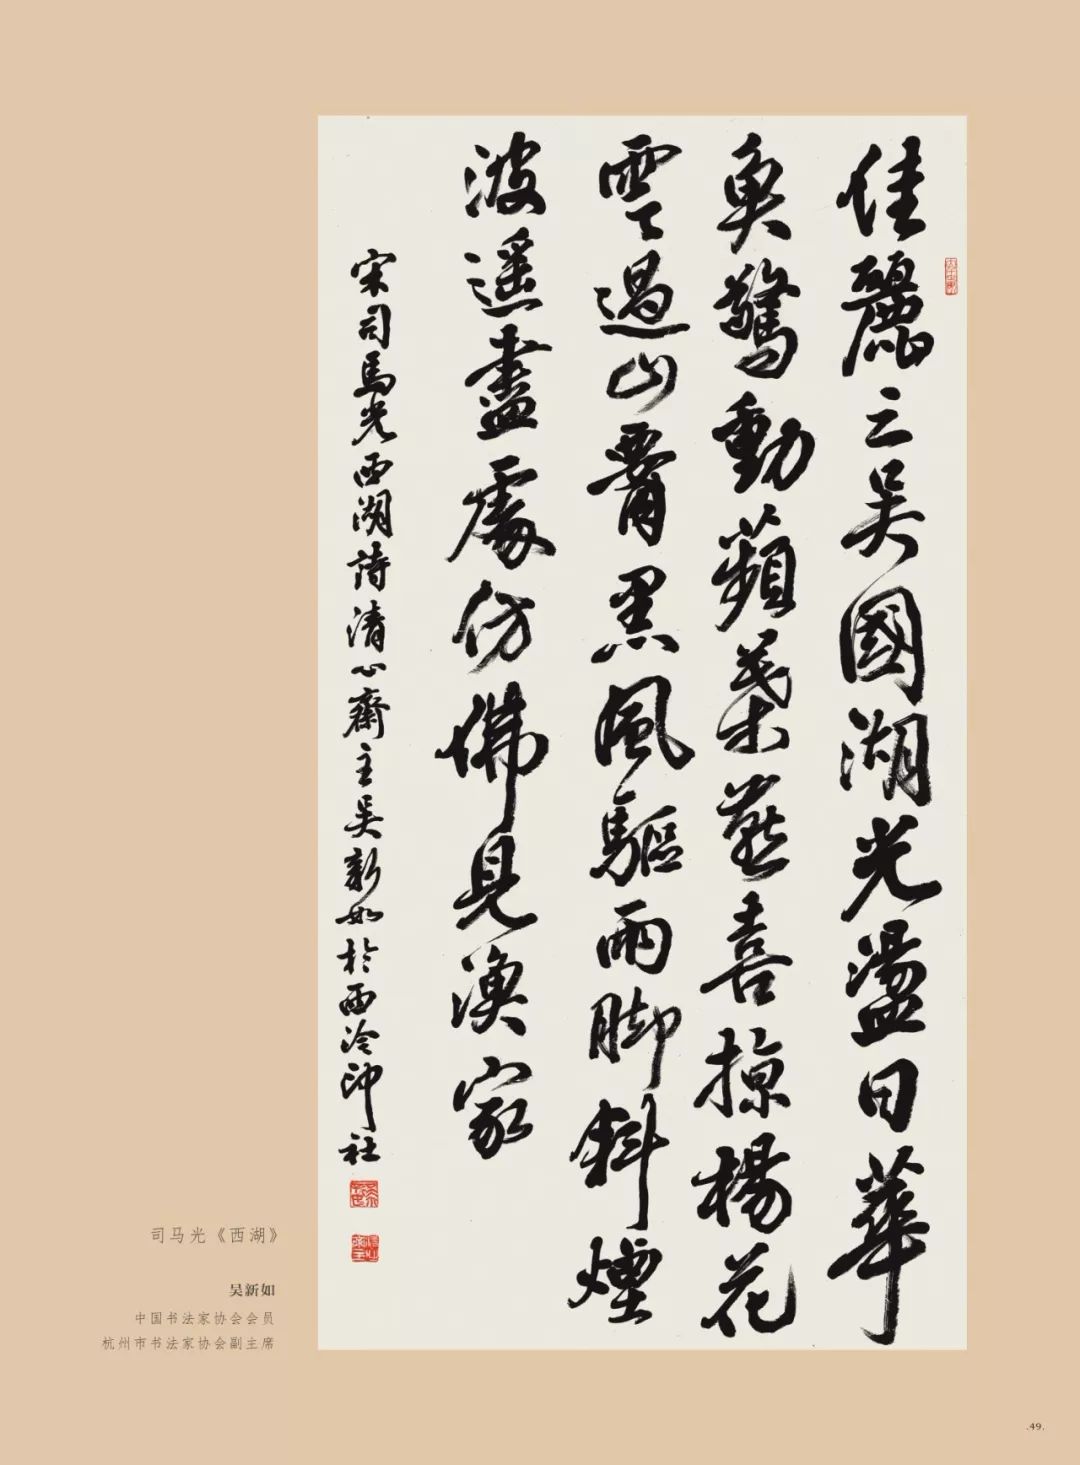 佳麗三吴國湖光盪日華
魚驚動蘋葉燕喜掠楊花
雲過山腰黑風驅雨脚斜煙
波遥盡處仿佛見漁家
宋司馬光西湖詩清心齋主吴新如於西泠印社
司马光《西湖》
吴新如
中国书法家协会会员
杭州市书法家协会副主席
.49.